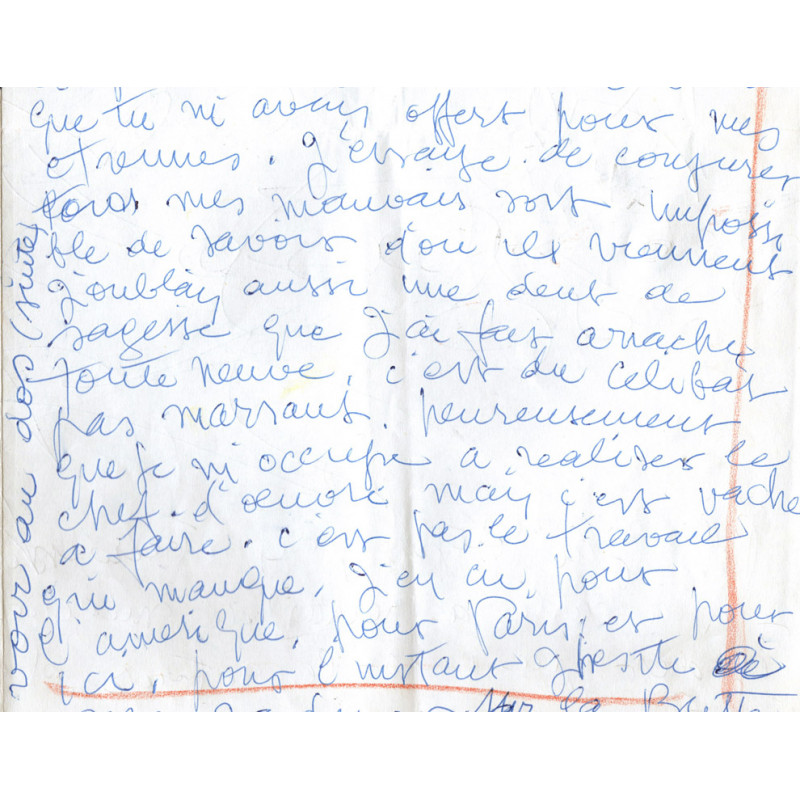 que tu m'avais offert pour mes
etrennes. J'essaye de conjurer
tous mes mauvais sort impossi
ble de savoir d'ou ils viennent
J'oubliay aussi une dent de
sagesse que j'ai fait arraché
toute neuve, c'est du celibat
pas marrant. heureusement
que je m'occupe a realiser le
chef. d'oeuvre mais c'est vache
a faire. c'est pas le travail
qui manque, j'en ai, pour
l'amerique, pour Paris, et pour
ici, pour l'instant j'hesite
sur la
voir au dos (suite)